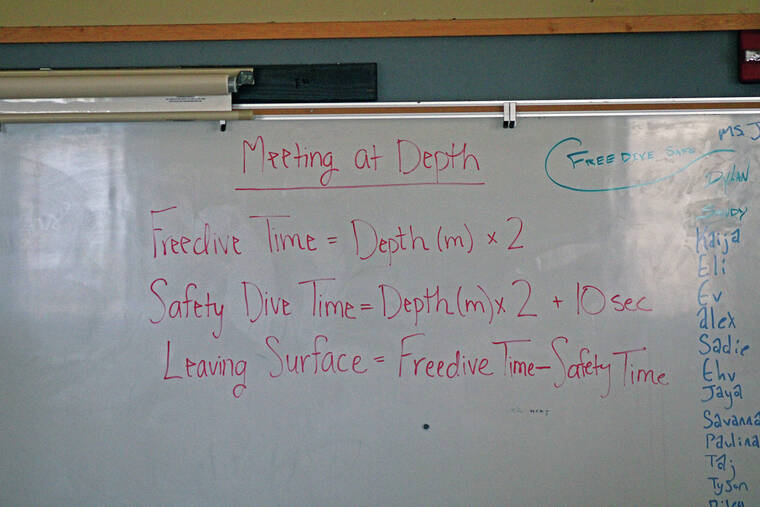 Meeting at Depth
Freedive Time = Depth (m) × 2
Safety Dive Time = Depth (m) × 2 + 10 sec
Leaving Surface = Freedive Time - Safety Time
FREE DIVE SAFE
MS. J
DYLAN
Kaija
Eli
Ev
alex
Sadie
Ehv
Jaya
Savanna
Paulina
Taj
Tyson
Riley